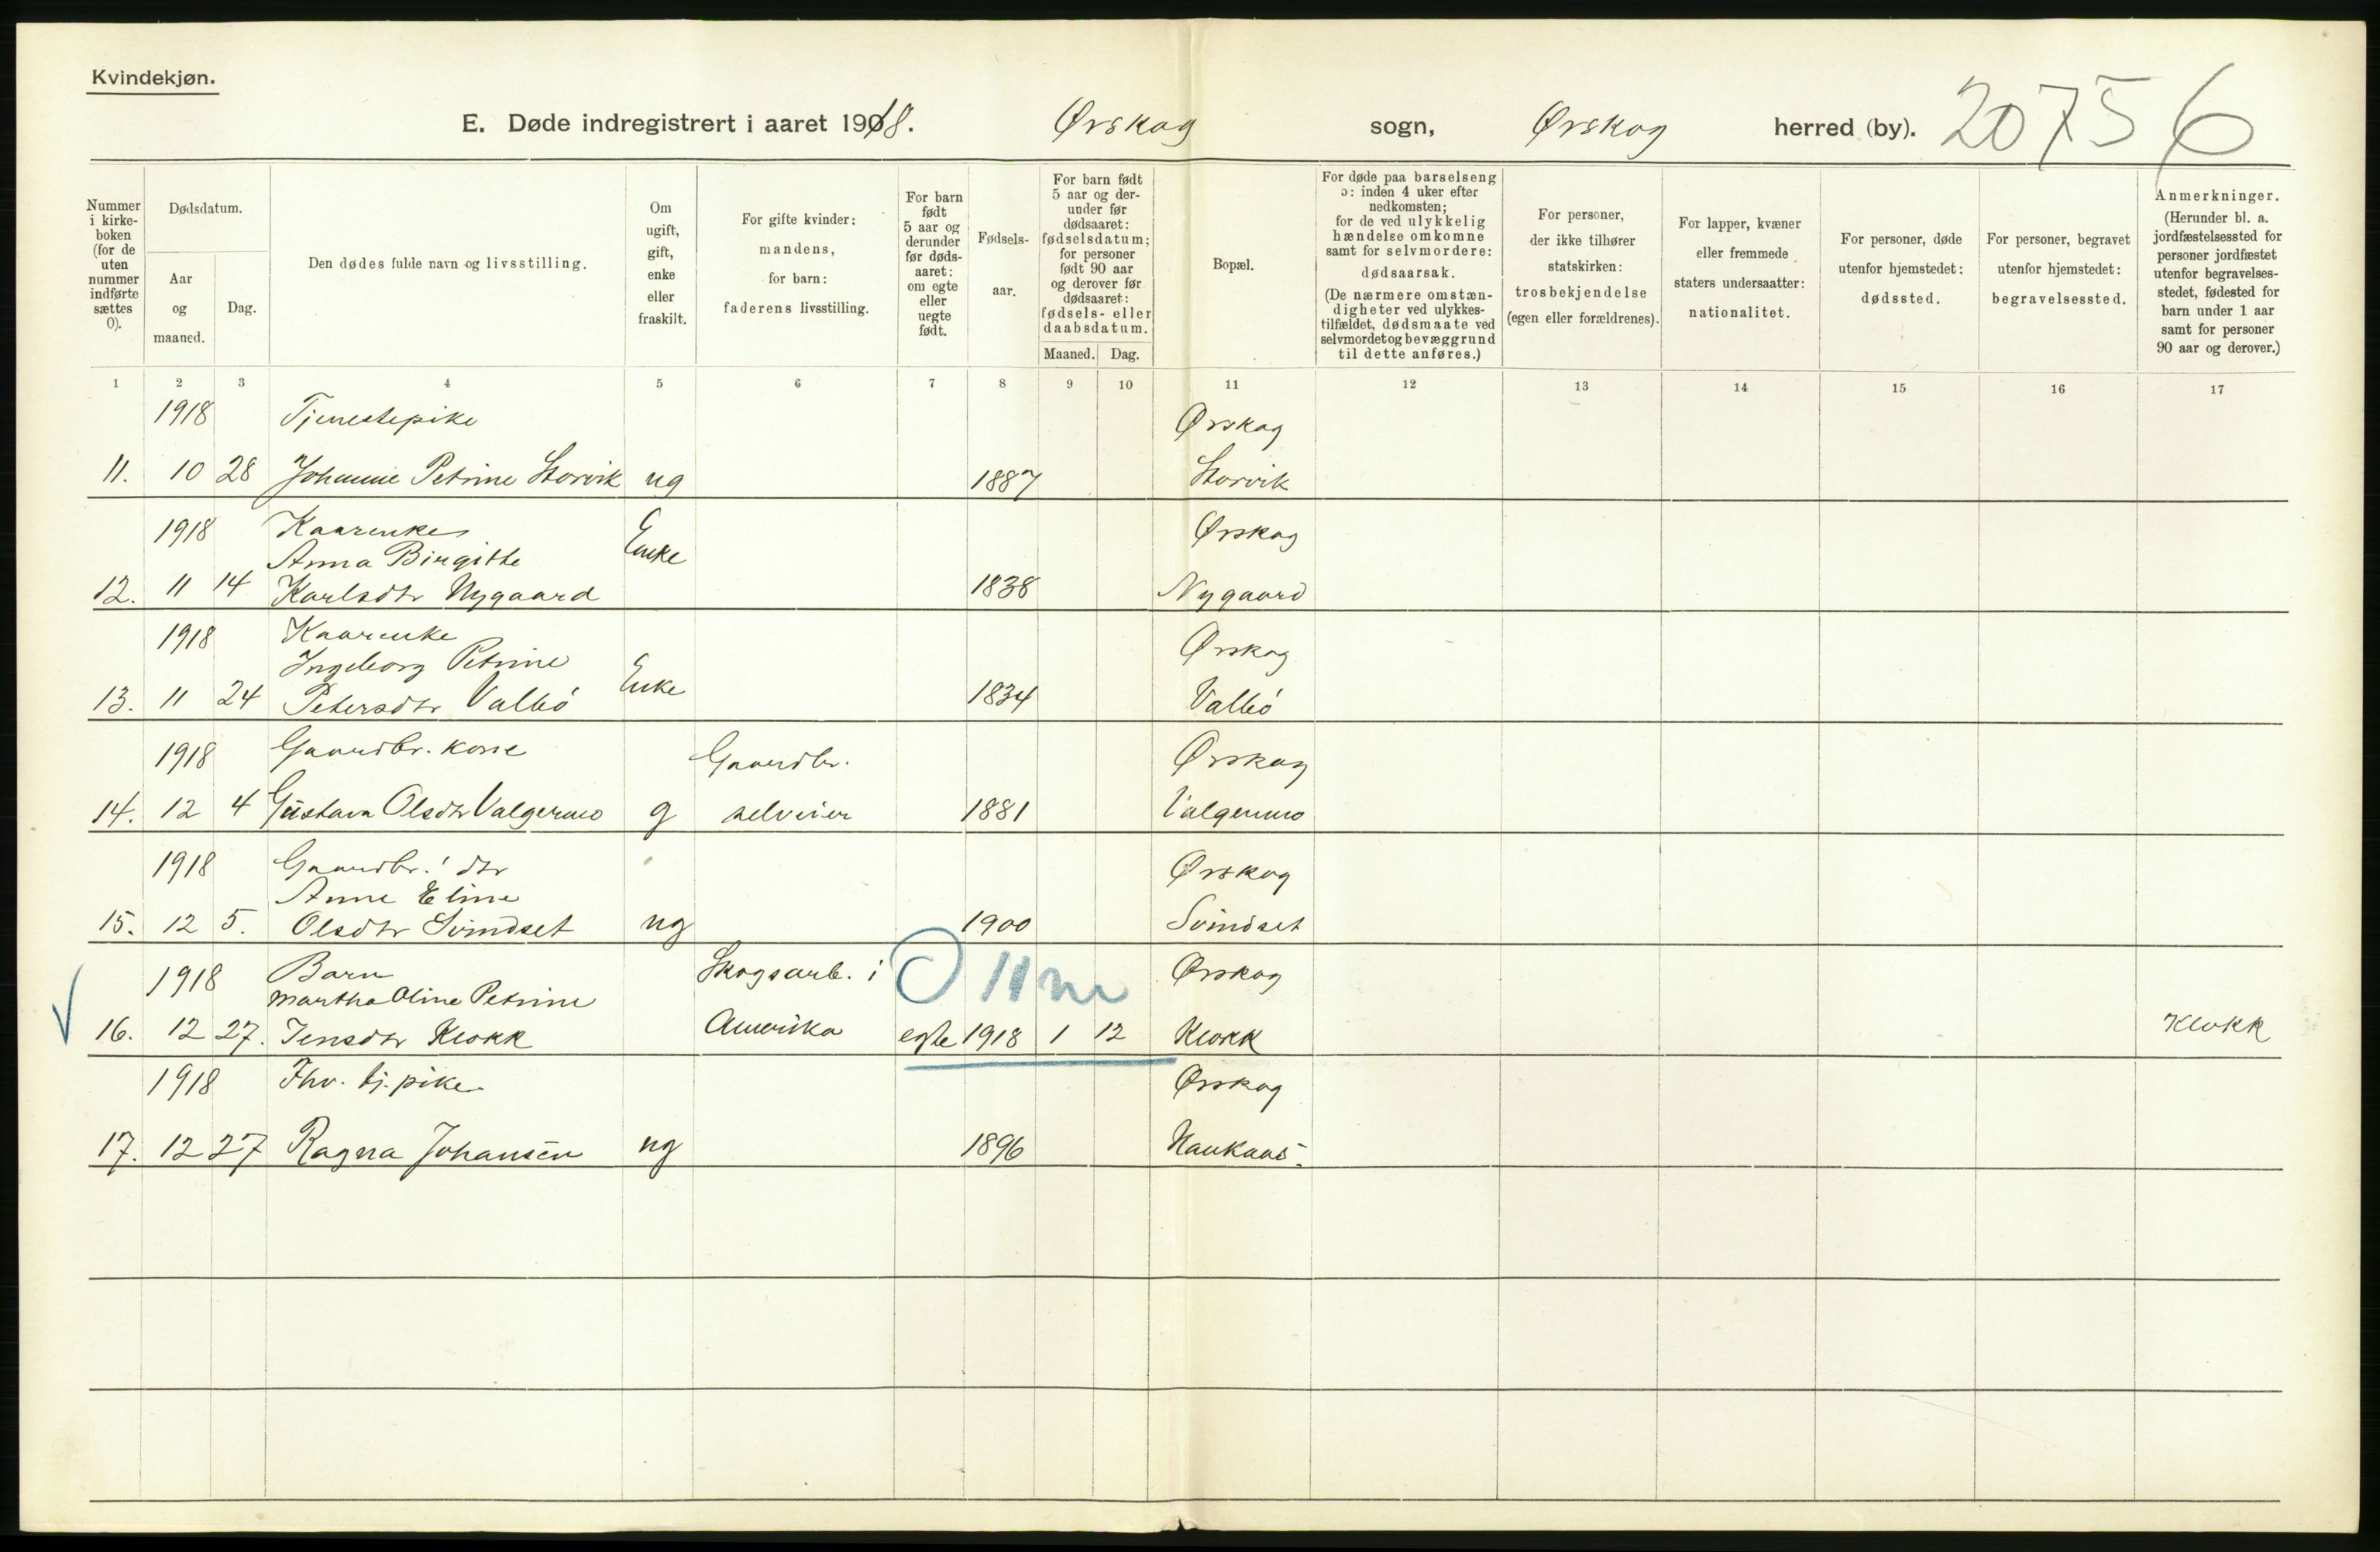 Kvindekjøn.
E. Døde indregistrert i aaret 1918. Ørskog sogn, Ørskog herred (by). 20756
Nummer i kirke-boken (for de uten nummer indførte sættes 0).
Dødsdatum.
Aar og maaned.
Dag.
Den dødes fulde navn og livsstilling.
Om ugift, gift, enke eller fraskilt.
For gifte kvinder: mandens, for barn: faderens livsstilling.
For barn født 5 aar og derunder før døds-aaret: om egte eller uegte født.
Fødsels-aar.
For barn født 5 aar og der-under før dødsaaret: fødselsdatum; for personer født 90 aar og derover før dødsaaret: fødsels- eller daabsdatum.
Maaned. Dag.
Bopæl.
For døde paa barselseng ɔ: inden 4 uker efter nedkomsten; for de ved ulykkelig hændelse omkomne samt for selvmordere: dødsaarsak. (De nærmere omstæn-digheter ved ulykkes-tilfældet, dødsmaate ved selvmordet og bevæggrund til dette anføres.)
For personer, der ikke tilhører statskirken: trosbekjendelse (egen eller forældrenes).
For lapper, kvæner eller fremmede staters undersaatter: nationalitet.
For personer, døde utenfor hjemstedet: dødssted.
For personer, begravet utenfor hjemstedet: begravelsessted.
Anmerkninger. (Herunder bl. a. jordfæstelsessted for personer jordfæstet utenfor begravelses-stedet, fødested for barn under 1 aar samt for personer 90 aar og derover.)
1 2 3 4 5 6 7 8 9 10 11 12 13 14 15 16 17
1918 Tjenestepike Ørskog
11. 10 28 Johanne Petrine Storvik ug 1887 Storvik
1918 Kaarenke Ørskog
Anna Birgitte Enke
12. 11 14 Karlsdtr Nygaard 1838 Nygaard
1918 Kaarenke Ørskog
Ingeborg Petrine
13. 11 24 Petersdtr Valbö Enke 1834 Valbö
1918 Gaardbr. kone Gaardbr. Ørskog
14. 12 4 Gustava Olsdtr Valgermo g selveier 1881 Valgermo
1918 Gaardbr. dtr Ørskog
Anne Eline
15. 12 5. Olsdtr Svindset ug 1900 Svindset
1918 Barn Skogsarb. i 11 m Ørskog
Martha Oline Petrine
16. 12 27. Jensdtr Klokk Amerika egte 1918 1 12 Klokk Klokk
1918 Fhv. tj. pike Ørskog
17. 12 27 Ragna Johansen ug 1896